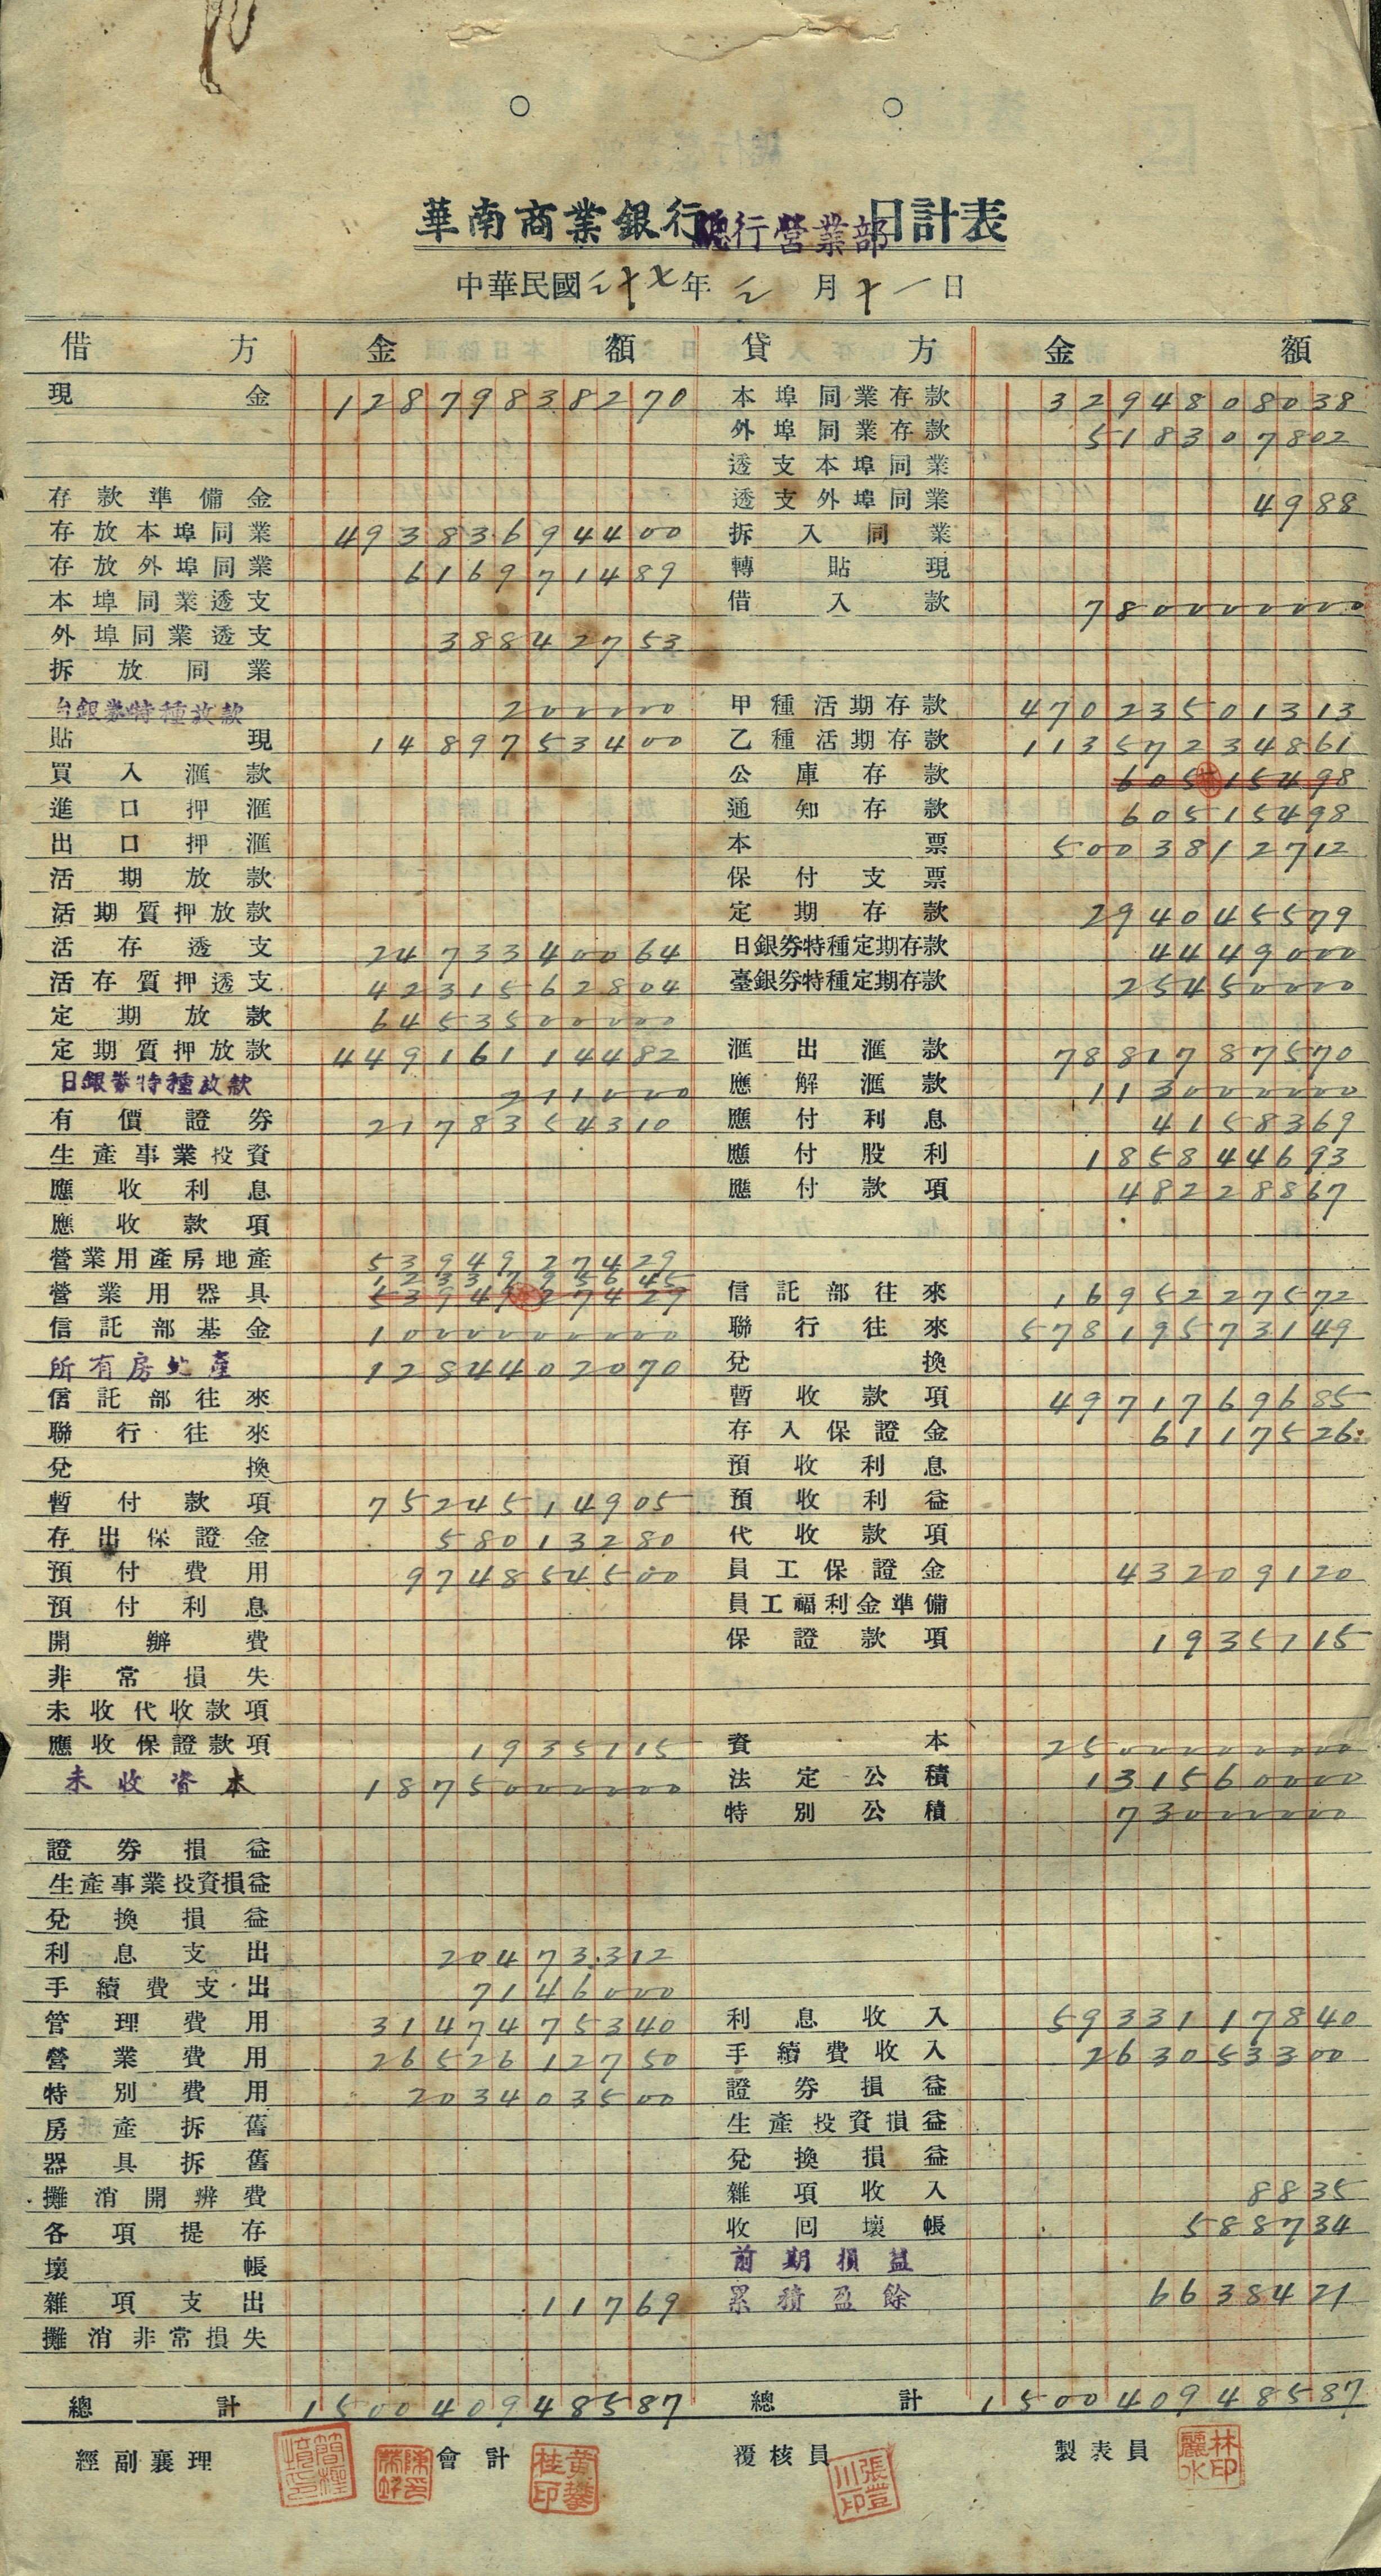 華南商業銀行總行營業部日計表
中華民國三十七年三月十一日
借方 金額 貸方 金額
現金 128798838270 本埠同業存款 3294808038
外埠同業存款 518307802
透支本埠同業
存款準備金 透支外埠同業 4988
存放本埠同業 49383694400 拆入同業
存放外埠同業 616971489 轉貼現
本埠同業透支 借入款 7800000000
外埠同業透支 38842753
拆放同業
台銀券特種放款 200000 甲種活期存款 47023501313
貼現 14897533400 乙種活期存款 11357234861
買入滙款 公庫存款 60515498
進口押滙 通知存款 60515498
出口押滙 本票 5003812712
活期放款 保付支票
活期質押放款 定期存款 294045579
活存透支 2473340064 日銀券特種定期存款 4449000
活存質押透支 4231562804 臺銀券特種定期存款 25450000
定期放款 64535000000
定期質押放款 449161144482 滙出滙款 7881787570
日銀券特種放款 211000 應解滙款 1130000000
有價證券 2178354310 應付利息 4158369
生產事業投資 應付股利 185844693
應收利息 應付款項 48228867
應收款項
營業用產房地產 5394927429
1233795645
營業用器具 5394927429 信託部往來 1695227572
信託部基金 10000000000 聯行往來 57819573149
所有房地產 1284402070 兌換
信託部往來 暫收款項 4971769685
聯行往來 存入保證金 6117526
兌換 預收利息
暫付款項 7524514905 預收利益
存出保證金 58013280 代收款項
預付費用 974854500 員工保證金 43209120
預付利息 員工福利金準備
開辦費 保證款項 1935115
非常損失
未收代收款項
應收保證款項 1935115 資本 2500000000
未收資本 1875000000 法定公積 131560000
特別公積 73000000
證券損益
生產事業投資損益
兌換損益
利息支出 20473312
手續費支出 7146000
管理費用 3147475340 利息收入 5933117840
營業費用 2652612750 手續費收入 263053300
特別費用 203403500 證券損益
房產拆舊 生產投資損益
器具拆舊 兌換損益
攤消開辨費 雜項收入 8835
各項提存 收回壞帳 588734
壞帳 前期損益
雜項支出 11769 累積盈餘 6638421
攤消非常損失
總計 150040948587 總計 150040948587
經副襄理 會計 黃攀桂印 覆核員 張豐川印 製表員 林麗水印